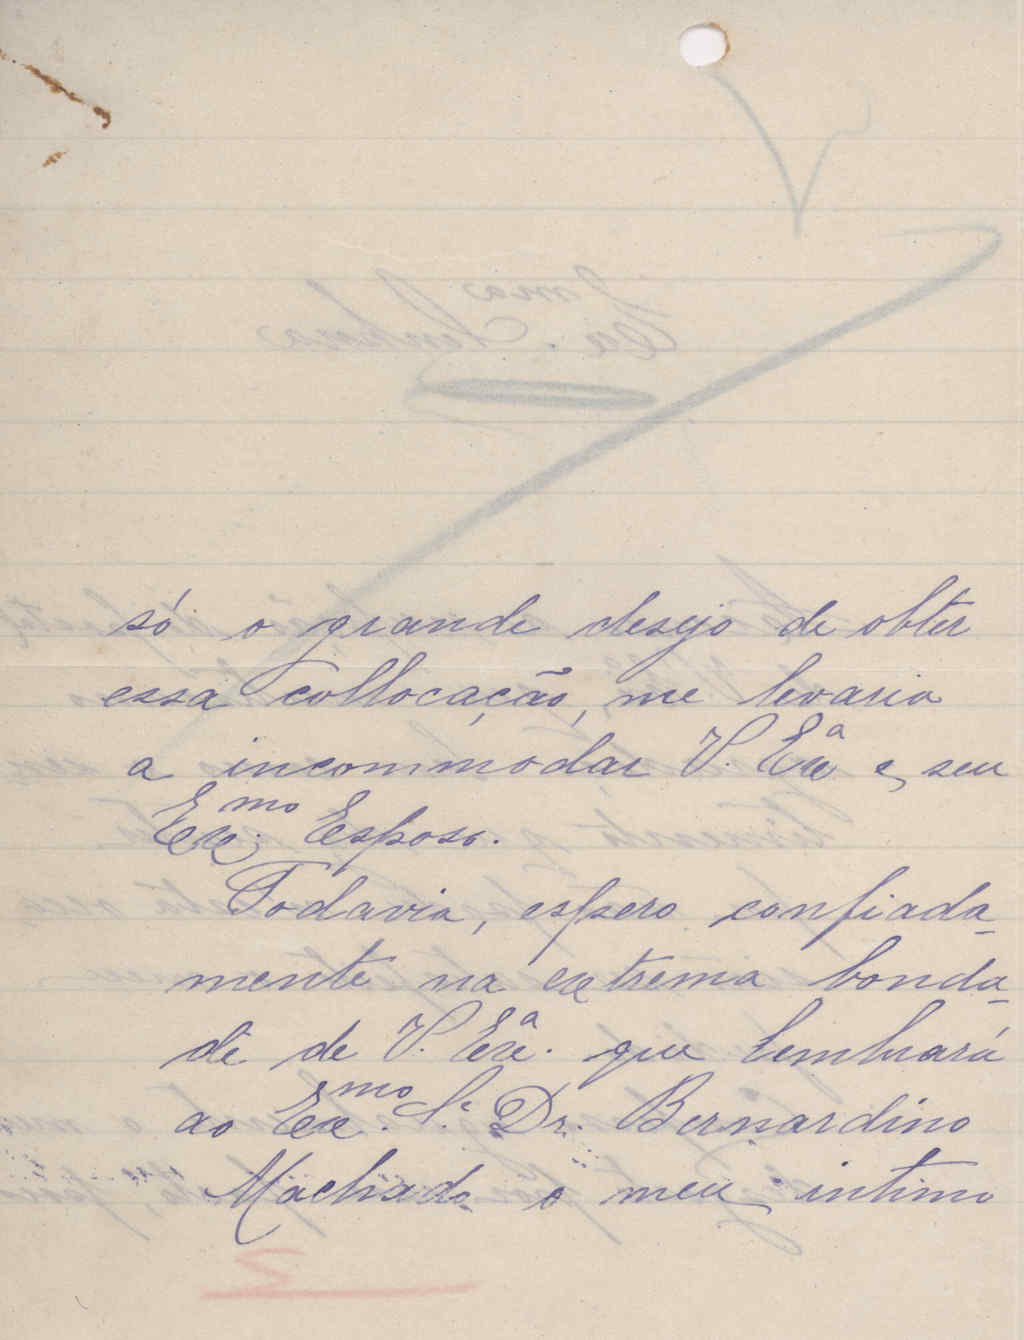 só o grande desejo de obter
essa collocação, me levaria
a incommodar V. Exª e seu
Exmo. Esposo.
Todavia, espero confiada-
mente na extrema bonda-
de de V. Exª. que lembrará
ao Exmo. Sr. Dr. Bernardino
Machado o meu intimo